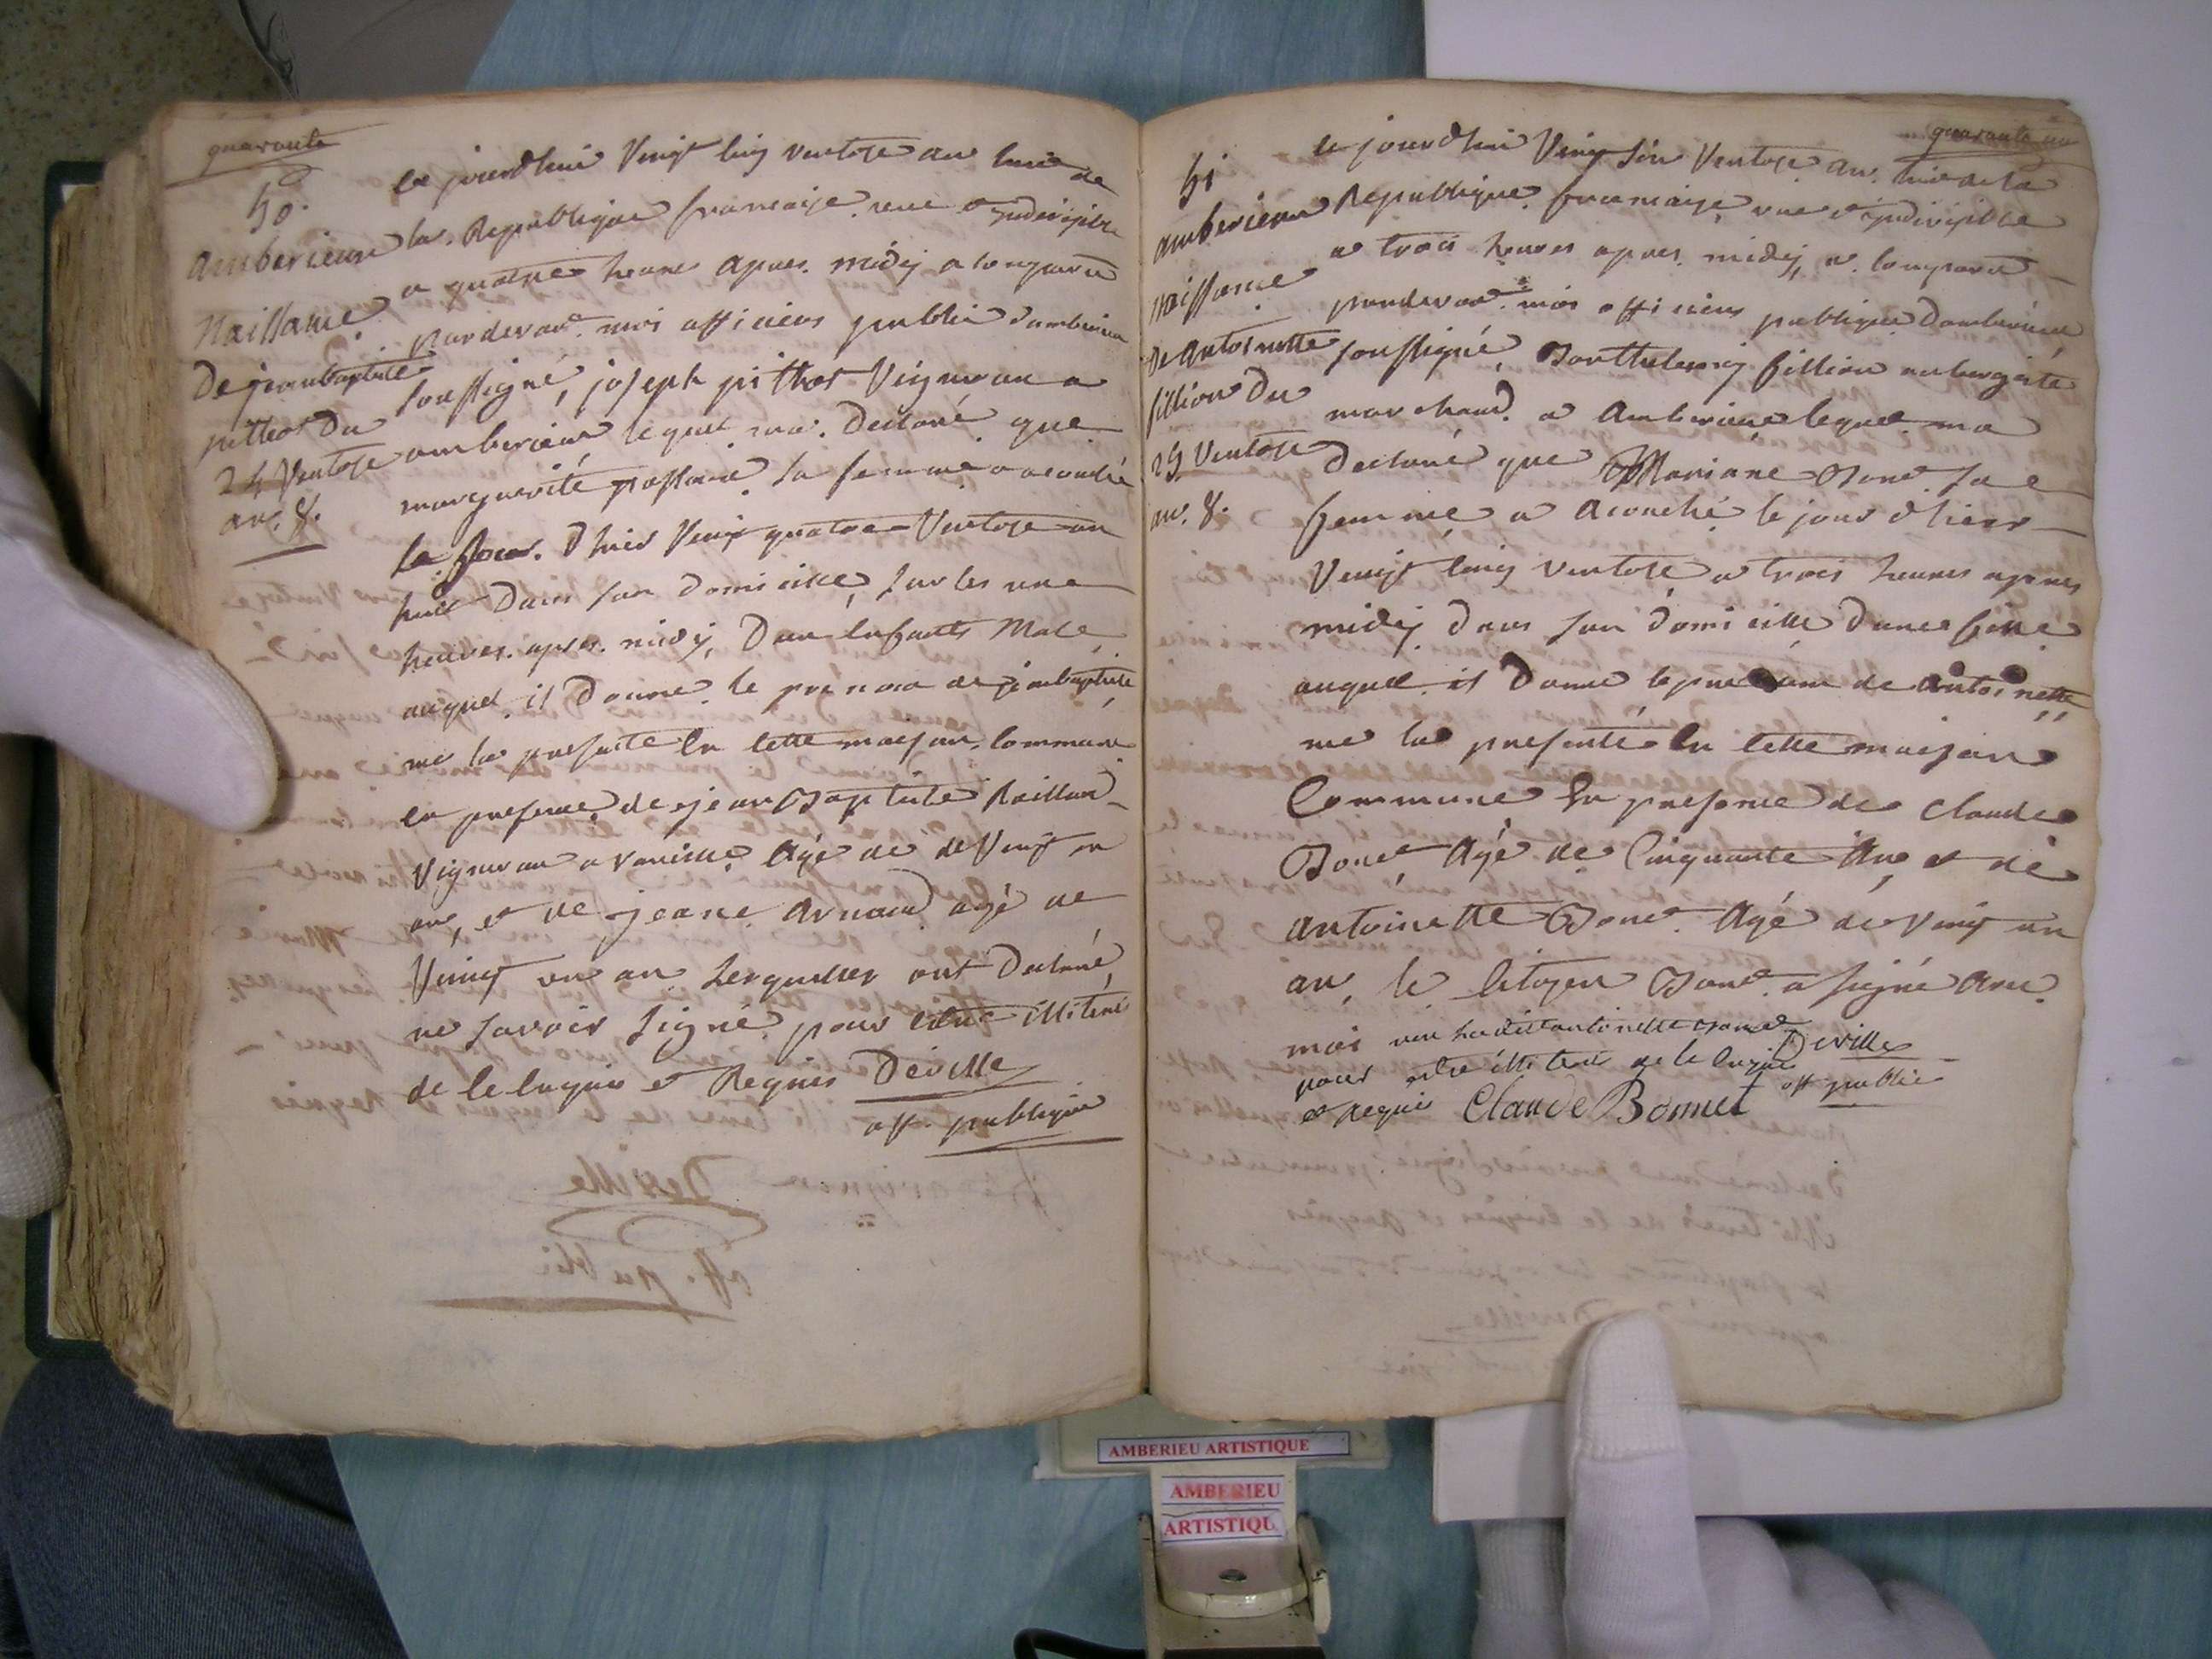 quarante
40.
amberieux
Naissance
De jeanbaptiste
pittiot du
24 Ventose
an. 8.
ce jourdhui Vingt cinq ventose an huit de
la Republique francaise une et indivisible
a quatre heures apres midy a comparu
pardevant moi officiers public damberieux
soussigné, joseph pithiot Vigneron a
amberieux lequel ma. Declaré que
marguerite sa femme a acouché
le jour. dhier Vingt quatre Ventose an
huit Dans son domicille, sur les une
heures. apres. midy, Dun Enfants Male
auquel il donne le prenom de jeanbaptiste
me la presenté En cette maison, commune
en presence de jean Baptiste
Vigneron a agé de de Vingt un
an, et de jeane arnaud agé de
Vingt un an lesquelles ont Declaré
ne savoir signé pour être illiteré
de ce Enquis et Requis Deville
off. publique
quarante un
41
amberieux
naissance
De antoinette
fillion du
25 Ventose
an. 8.
ce jourdhui Vingt six Ventose an. huit de la
Republique francaise une et indivisible
a trois heures apres midy, a comparu
pardevant moi officiers publique Damberieux
soussigné, Barthelemy fillion aubergiste
marchand. a Amberieux lequel ma
declaré que Mariane Bonet sa
femme a acouché le jour dhier
Vingt cinq ventose a trois heures apres
midy dans son domicille Dune fille
auquel il Donne le prenom de antoinette
me la presenté En cette maison
Commune En presence de claude
Bonet Agé de Cinquante An, et de
antoinette Bonet Agé de Vingt un
an, le Citoyen Bonet a signé avec
moi non ladite antoinette Bonet
pour etre illiteré de ce Enquis Deville
et Requis Claude Bonnet off public
AMBERIEU ARTISTIQUE
AMBERIEU
ARTISTIQU